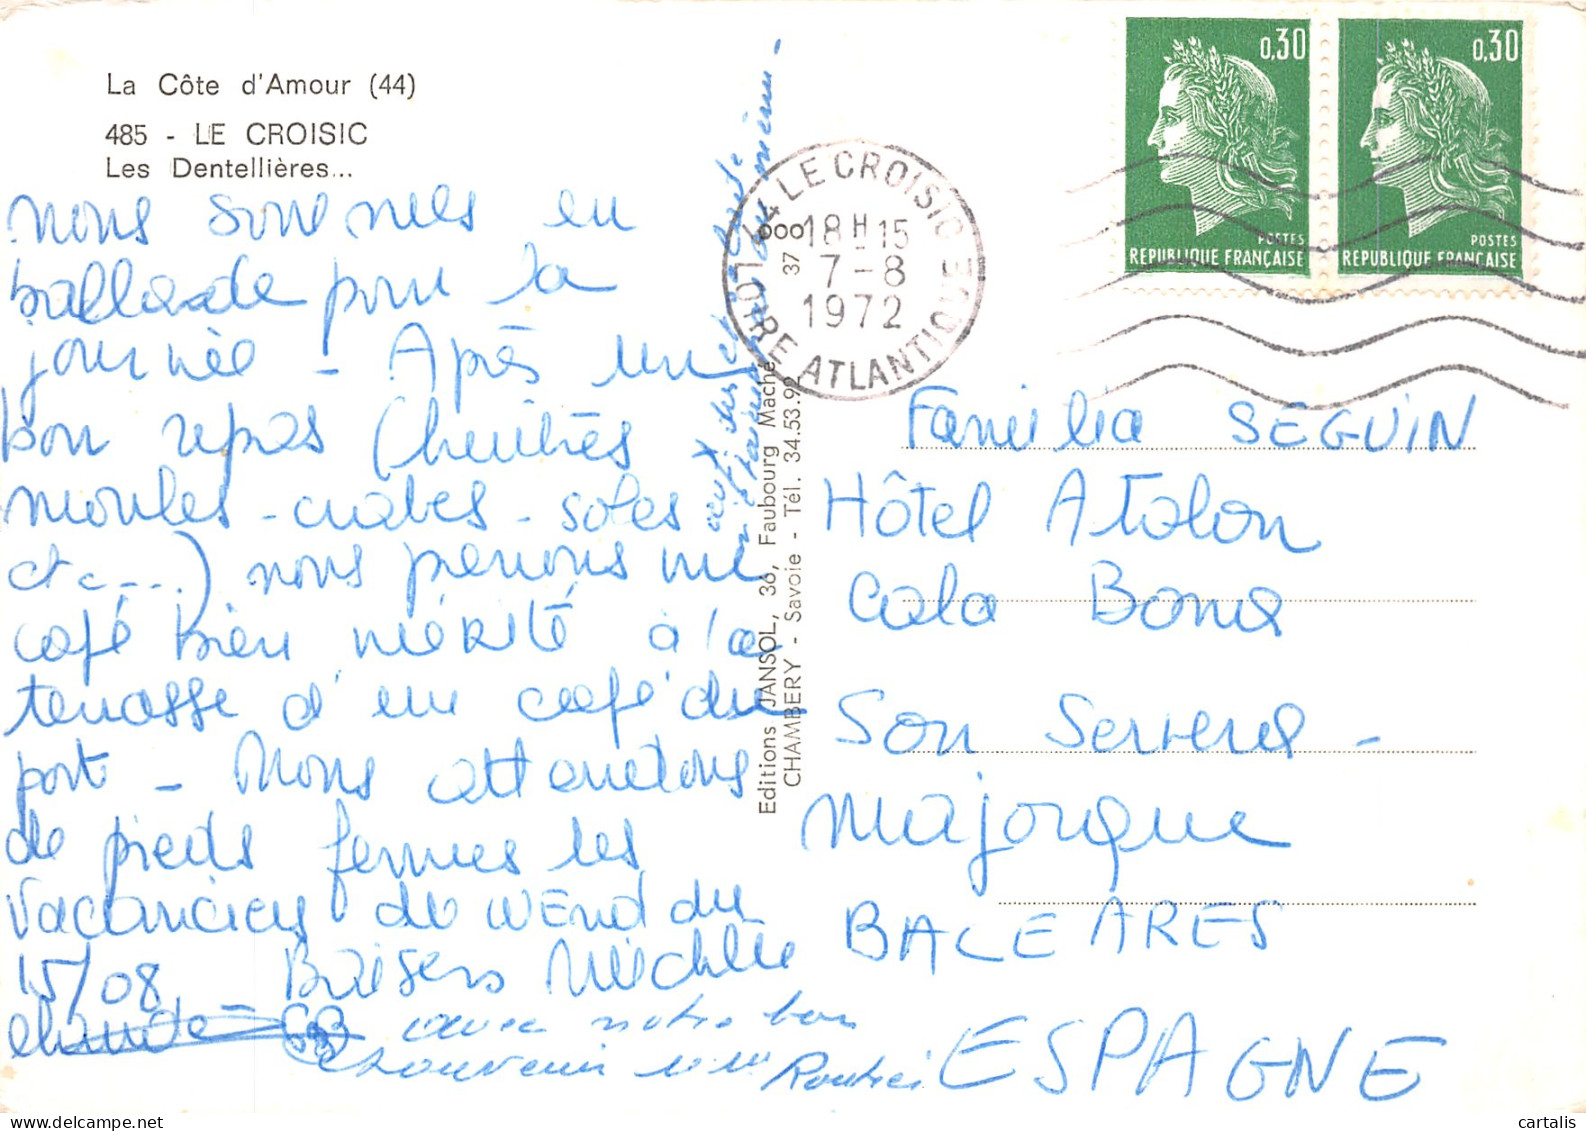 La Côte d'Amour (44)
485 - LE CROISIC
Les Dentellières...
nous sommes en
ballade pour la
journée - Après un
bon repas (huitres
moules - crabes - soles
etc...) nous prenons un
café bien mérité à la
terrasse d'un café du
port - Nous attendons
de pieds fermes les
vacanciers de WEnd du
15/08 Baisers Michèle
Claude
avec notre bon
souvenir
Editions JANSOL, 36, Faubourg Maché,
CHAMBERY - Savoie - Tél. 34.53.99
44 LE CROISIC
LOIRE ATLANTIQUE
18H15
7-8
1972
37
000
0,30
POSTES
REPUBLIQUE FRANÇAISE
0,30
POSTES
REPUBLIQUE FRANÇAISE
Familia SEGUIN
Hôtel Atolon
Cala Bona
Son Servera -
Majorque
BALEARES
ESPAGNE
cartalis